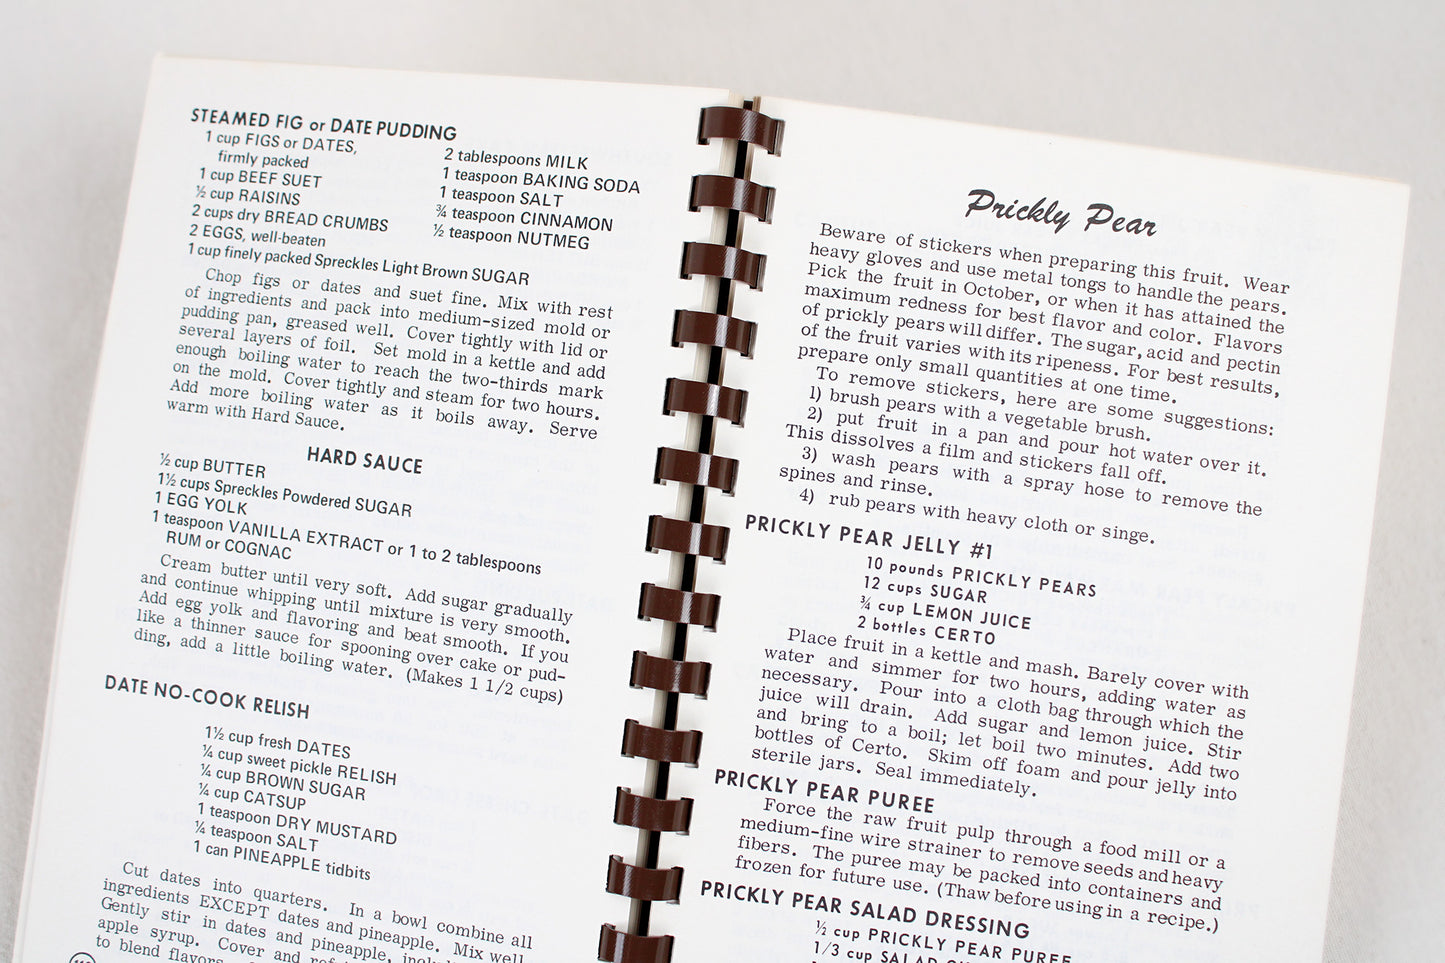 STEAMED FIG or DATE PUDDING
1 cup FIGS or DATES,
firmly packed
1 cup BEEF SUET
½ cup RAISINS
2 cups dry BREAD CRUMBS
2 EGGS, well-beaten
1 cup finely packed Spreckles Light Brown SUGAR
2 tablespoons MILK
1 teaspoon BAKING SODA
1 teaspoon SALT
¾ teaspoon CINNAMON
½ teaspoon NUTMEG
Chop figs or dates and suet fine. Mix with rest
of ingredients and pack into medium-sized mold or
pudding pan, greased well. Cover tightly with lid or
several layers of foil. Set mold in a kettle and add
enough boiling water to reach the two-thirds mark
on the mold. Cover tightly and steam for two hours.
Add more boiling water as it boils away. Serve
warm with Hard Sauce.
HARD SAUCE
½ cup BUTTER
1½ cups Spreckles Powdered SUGAR
1 EGG YOLK
1 teaspoon VANILLA EXTRACT or 1 to 2 tablespoons
RUM or COGNAC
Cream butter until very soft. Add sugar gradually
and continue whipping until mixture is very smooth.
Add egg yolk and flavoring and beat smooth. If you
like a thinner sauce for spooning over cake or pud-
ding, add a little boiling water. (Makes 1 1/2 cups)
DATE NO-COOK RELISH
1½ cup fresh DATES
¼ cup sweet pickle RELISH
¼ cup BROWN SUGAR
¼ cup CATSUP
1 teaspoon DRY MUSTARD
¼ teaspoon SALT
1 can PINEAPPLE tidbits
Cut dates into quarters. In a bowl combine all
ingredients EXCEPT dates and pineapple. Mix well.
Gently stir in dates and pineapple,
apple syrup. Cover and
to blend flavors.
Prickly Pear
Beware of stickers when preparing this fruit. Wear
heavy gloves and use metal tongs to handle the pears.
Pick the fruit in October, or when it has attained the
maximum redness for best flavor and color. Flavors
of prickly pears will differ. The sugar, acid and pectin
of the fruit varies with its ripeness. For best results,
prepare only small quantities at one time.
To remove stickers, here are some suggestions:
1) brush pears with a vegetable brush.
2) put fruit in a pan and pour hot water over it.
This dissolves a film and stickers fall off.
3) wash pears with a spray hose to remove the
spines and rinse.
4) rub pears with heavy cloth or singe.
PRICKLY PEAR JELLY #1
10 pounds PRICKLY PEARS
12 cups SUGAR
¾ cup LEMON JUICE
2 bottles CERTO
Place fruit in a kettle and mash. Barely cover with
water and simmer for two hours, adding water as
necessary. Pour into a cloth bag through which the
juice will drain. Add sugar and lemon juice. Stir
and bring to a boil; let boil two minutes. Add two
bottles of Certo. Skim off foam and pour jelly into
sterile jars. Seal immediately.
PRICKLY PEAR PUREE
Force the raw fruit pulp through a food mill or a
medium-fine wire strainer to remove seeds and heavy
fibers. The puree may be packed into containers and
frozen for future use. (Thaw before using in a recipe.)
PRICKLY PEAR SALAD DRESSING
½ cup PRICKLY PEAR PUREE
1/3 cup SALAD